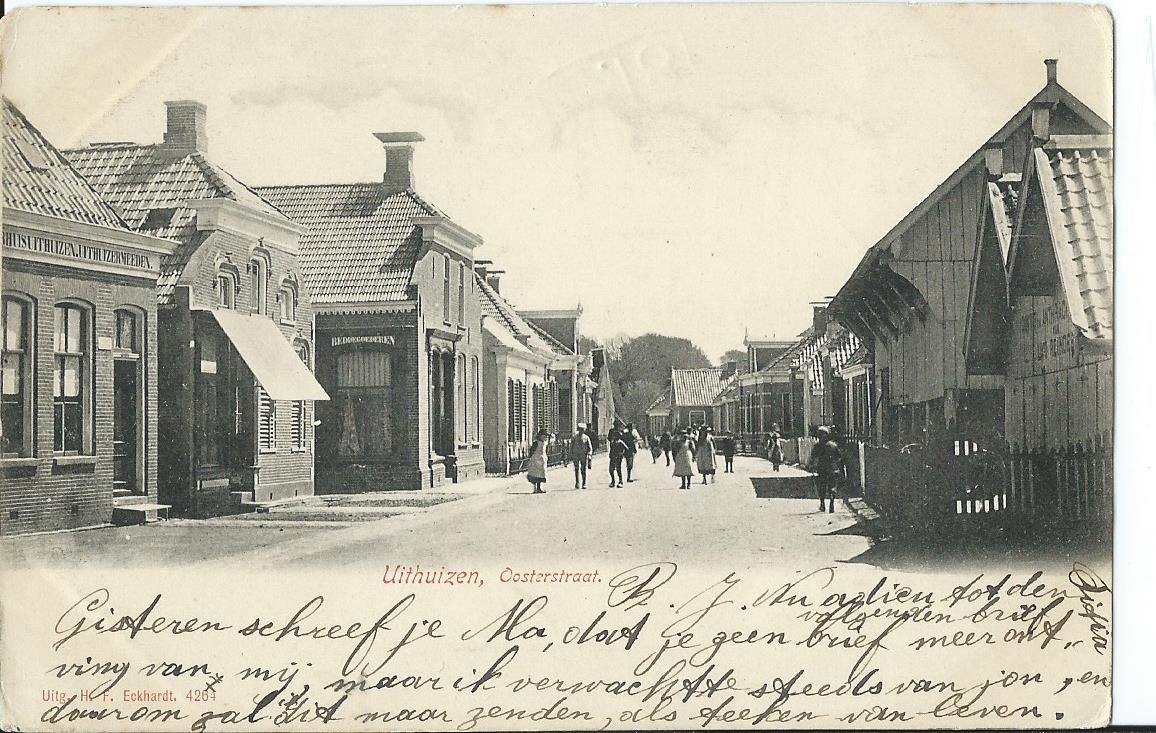 RHUIS UITHUIZEN, UITHUIZERMEEDEN.
BEDDEGOEDEREN
Uithuizen, Oosterstraat.
P. J. Nu adieu tot den
volgenden brief
Gisteren schreef je Ma, dat je geen brief meer ont„
ving van mij, maar ik verwachtte steeds van jou, en
daarom zal dit maar zenden, als teeken van leven.
Uitg. H. F. Eckhardt. 4264